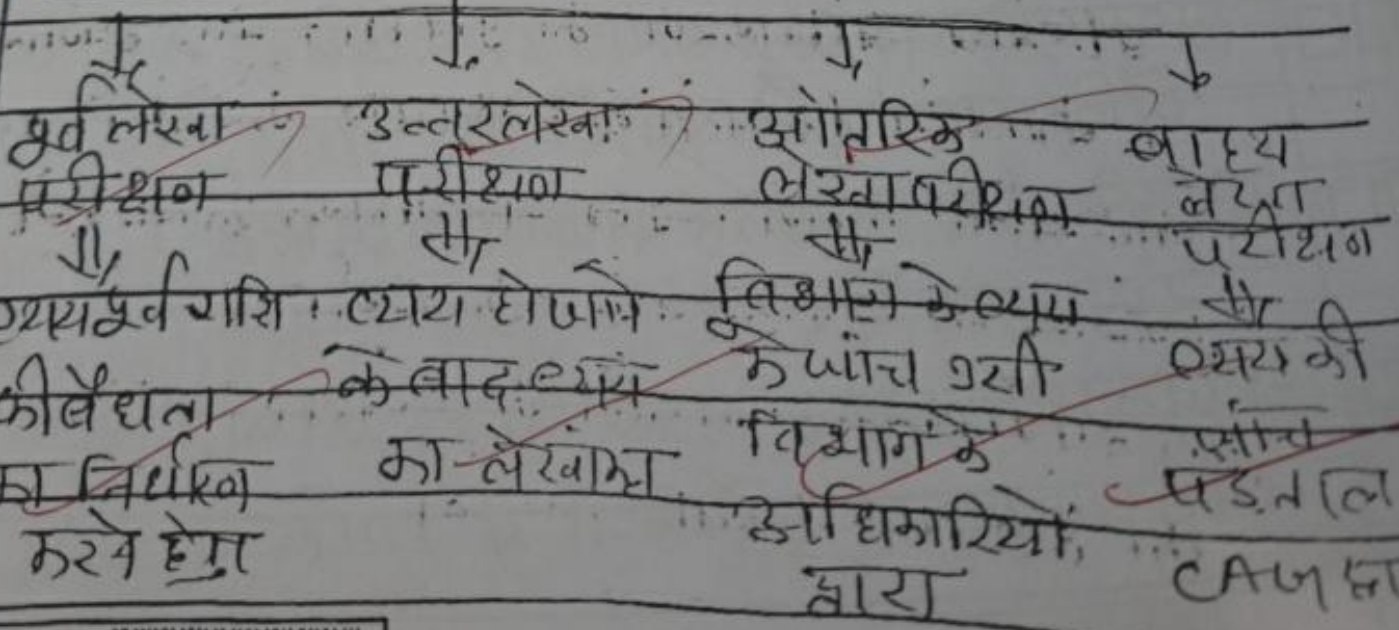 पूर्व लेखा
परीक्षण
व्ययपूर्व राशि
की वैधता
का निर्धारण
करने हेतु
उत्तर लेखा
परीक्षण
व्यय हो जाने
के बाद व्यय
का लेखांकन
आंतरिक
लेखा परीक्षण
विभाग के व्यय
की जांच उसी
विभाग के
अधिकारियों
द्वारा
बाह्य
लेखा
परीक्षण
व्यय की
जांच
पड़ताल
CAG द्वा